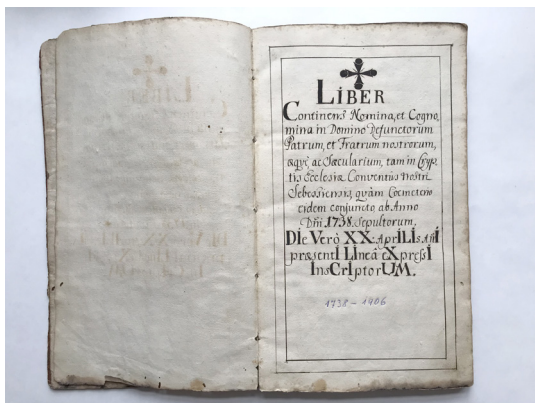 LIBER
Continens Nomina, et Cogno,
mina in Domino Defunctorum
Patrum, et Fratrum nostrorum,
æqvè ac Sæcularium, tam in Cryp,
tis Ecclesiæ Conventûs Nostri
Sebessiensis, quàm Coemeterio
eidem conjuncto ab Anno
Dñi 1738. Sepultorum.
DIe Verò XX. AprILIs Añi
præsentI LIneâ eXpressI
InsCrIptorUM.
1738 - 1906